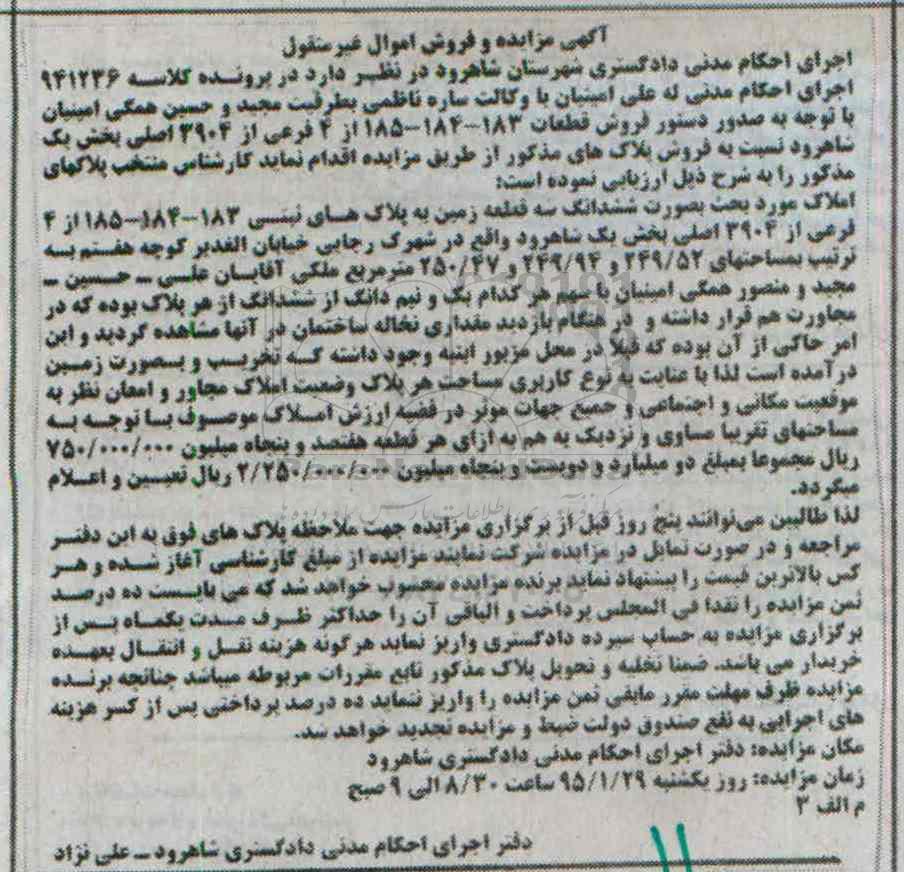 آگهی مزایده و فروش اموال غیر منقول
اجرای احکام مدنی دادگستری شهرستان شاهرود در نظر دارد در پرونده کلاسه ۹۴۱۲۳۶
اجرای احکام مدنی له علی امینیان با وکالت ساره ناظمی بطرفیت مجید و حسین همگی امینیان
با توجه به صدور دستور فروش قطعات ۱۸۳-۱۸۴-۱۸۵ از ۴ فرعی از ۳۹۰۴ اصلی بخش یک
شاهرود نسبت به فروش پلاک های مذکور از طریق مزایده اقدام نماید کارشناس منتخب پلاکهای
مذکور را به شرح ذیل ارزیابی نموده است:
املاک مورد بحث بصورت ششدانگ سه قطعه زمین به پلاک های ثبتی ۱۸۳-۱۸۴-۱۸۵ از ۴
فرعی از ۳۹۰۴ اصلی بخش یک شاهرود واقع در شهرک رجایی خیابان الغدیر کوچه هفتم به
ترتیب بمساحتهای ۲۴۹/۵۲ و ۲۴۹/۹۴ و ۲۵۰/۴۷ مترمربع ملکی آقایان علی ـ حسین ـ
مجید و منصور همگی امینیان با سهم هر کدام یک و نیم دانگ از ششدانگ از هر پلاک بوده که در
مجاورت هم قرار داشته و در هنگام بازدید مقداری نخاله ساختمان در آنها مشاهده گردید و این
امر حاکی از آن بوده که قبلا در محل مزبور ابنیه وجود داشته که تخریب و بصورت زمین
درآمده است لذا با عنایت به نوع کاربری مساحت هر پلاک وضعیت املاک مجاور و امعان نظر به
موقعیت مکانی و اجتماعی و جمیع جهات موثر در قضیه ارزش املاک موصوف با توجه به
مساحتهای تقریبا مساوی و نزدیک به هم به ازای هر قطعه هفتصد و پنجاه میلیون ۷۵۰/۰۰۰/۰۰۰
ریال مجموعا بمبلغ دو میلیارد و دویست و پنجاه میلیون ۲/۲۵۰/۰۰۰/۰۰۰ ریال تعیین و اعلام
میگردد.
لذا طالبین می‌توانند پنج روز قبل از برگزاری مزایده جهت ملاحظه پلاک های فوق به این دفتر
مراجعه و در صورت تمایل در مزایده شرکت نمایند مزایده از مبلغ کارشناسی آغاز شده و هر
کس بالاترین قیمت را پیشنهاد نماید برنده مزایده محسوب خواهد شد که می بایست ده درصد
ثمن مزایده را نقدا فی المجلس پرداخت و الباقی آن را حداکثر ظرف مدت یکماه پس از
برگزاری مزایده به حساب سپرده دادگستری واریز نماید هرگونه هزینه نقل و انتقال بعهده
خریدار می باشد. ضمنا تخلیه و تحویل پلاک مذکور تابع مقررات مربوطه میباشد چنانچه برنده
مزایده ظرف مهلت مقرر مابقی ثمن مزایده را واریز ننماید ده درصد پرداختی پس از کسر هزینه
های اجرایی به نفع صندوق دولت ضبط و مزایده تجدید خواهد شد.
مکان مزایده: دفتر اجرای احکام مدنی دادگستری شاهرود
زمان مزایده: روز یکشنبه ۹۵/۱/۲۹ ساعت ۸/۳۰ الی ۹ صبح
م الف ۳
دفتر اجرای احکام مدنی دادگستری شاهرود ـ علی نژاد
۱۱